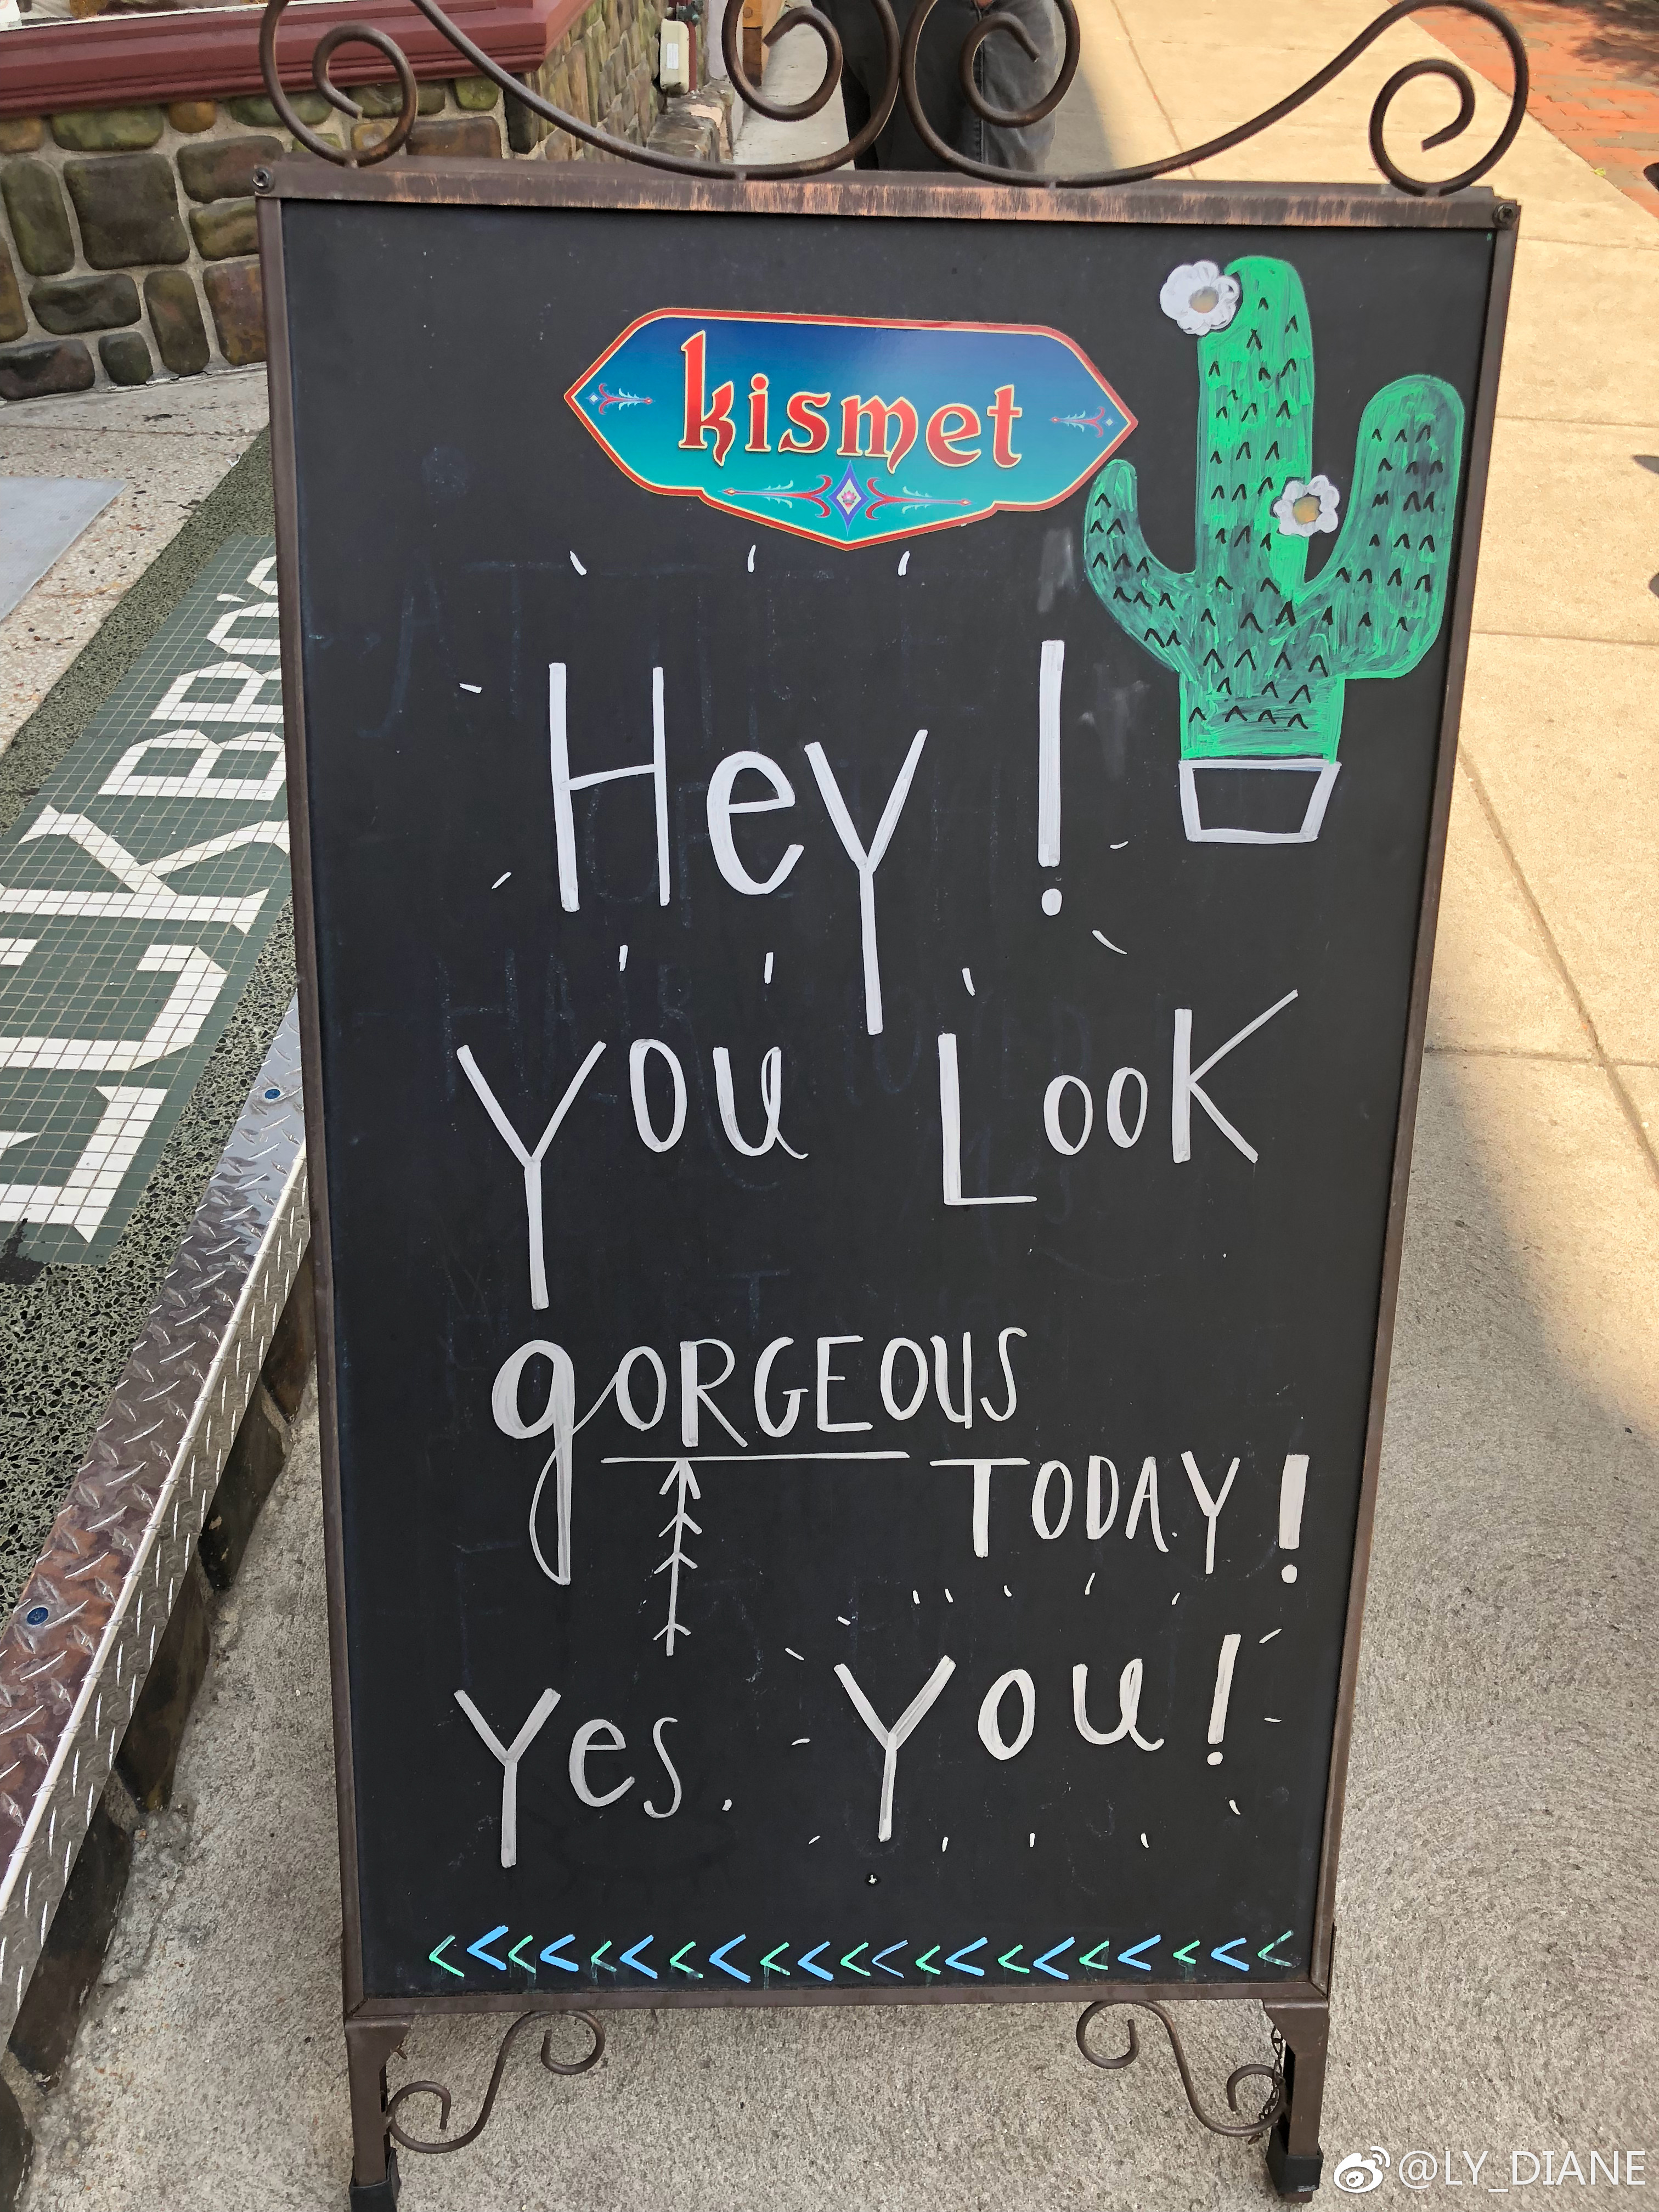 kismet
Hey!
You Look
gORGEOUS
TODAY!
Yes. You!
@LY_DIANE